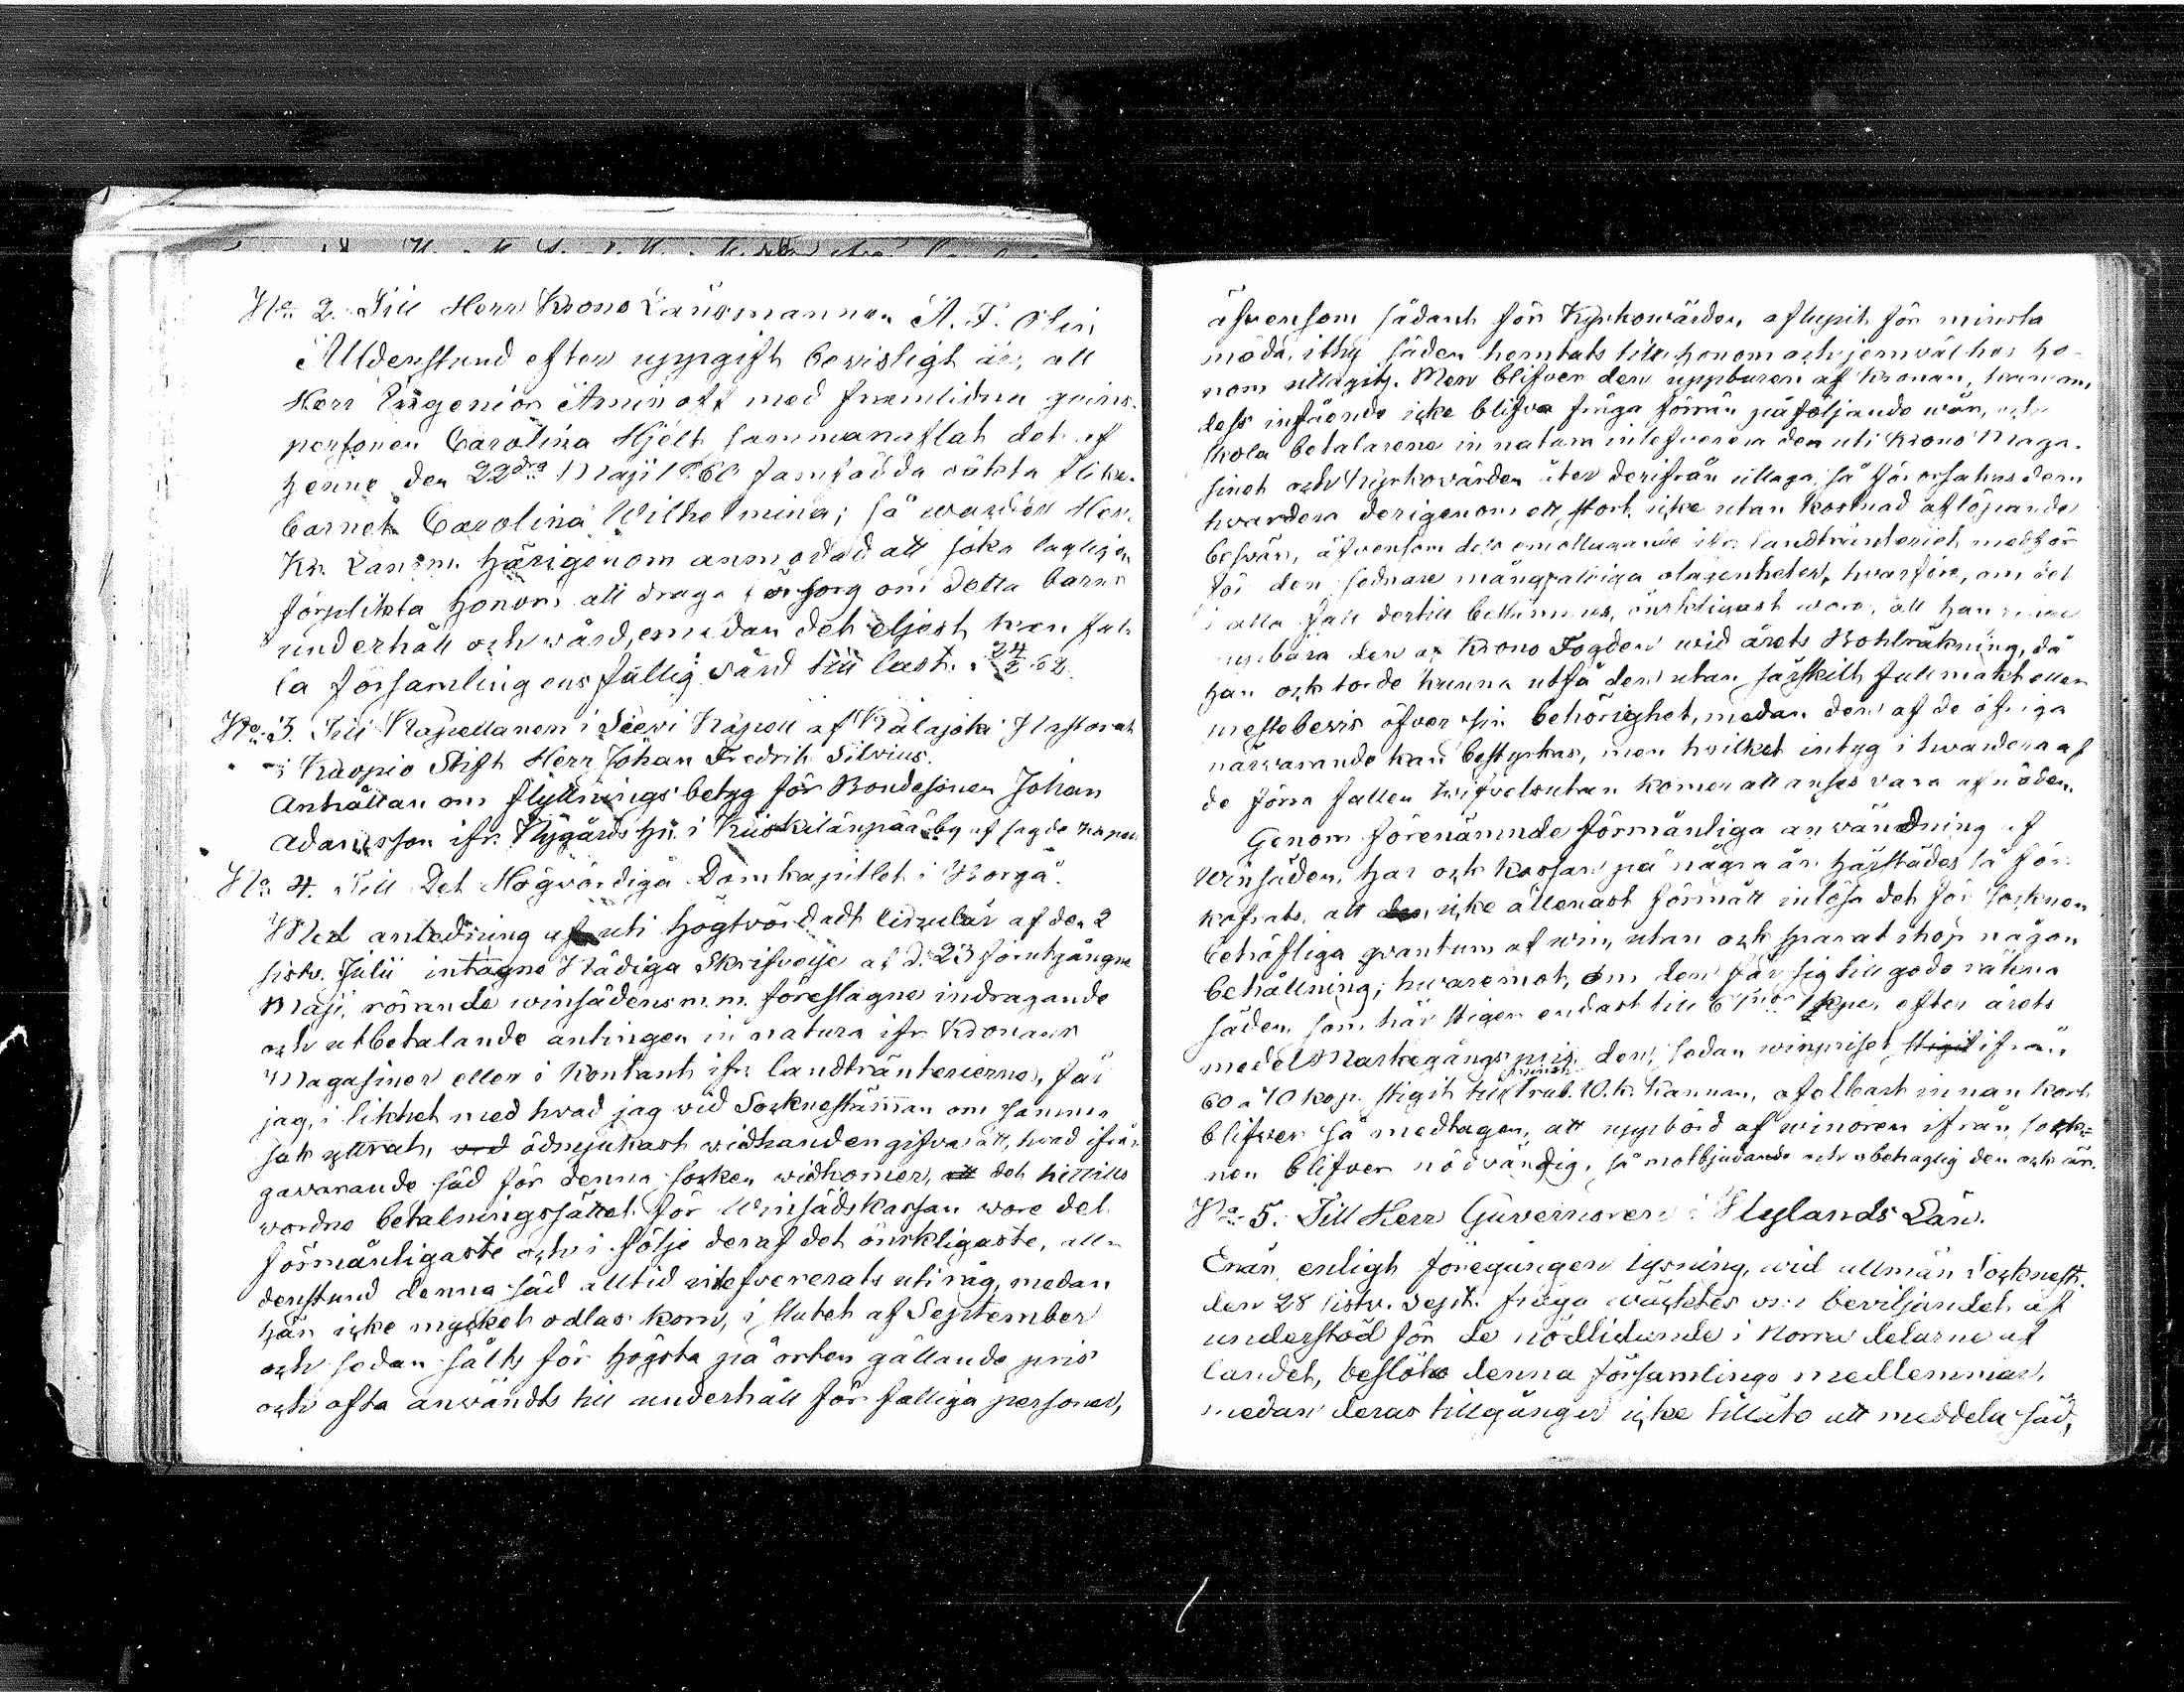 No 2. Till Herr Krono Länsmannen A. F. Olin
Alldenstund efter uppgift bevisligt är, att
Herr Ingeniör Aminoff med framlidna qvins-
personen Carolina Hjelt sammanaflat det af
henne den 22dra Maji 1860 framfödda oäkta flicke-
barnet Carolina Wilhelmina; så warder Herr
Kr. Länsm. härigenom anmodad att söka lagligen
förplikta honom att draga försorg om detta barns
underhåll och wård, emedan det eljest kan fal-
la församlingens fattigvård till last. 24/2 62.
No 3. Till Kapellanen i Siewi Kapell af Kalajoki Pastorat
i Kuopio Stift Herr Johan Fredrik Silvius.
Anhållan om flyttningsbetyg för Bondesonen Johan
Adamsson ifr. Nygårds hn. i Kiiskilänpää by af sagde Kapell
No 4. Till Det Högvördiga Domkapitlet i Borgå.
Med anledning af uti högtvördadt Cirkulär af den 2
sistv. Julii intagne Nådiga Skrifvelse af d. 23 förutgångne
Maji, rörande winsädens m.m. föreslagne indragande
och utbetalande antingen in natura ifr. Kronans
Magasiner eller i kontant ifr. landtränterierne, får
jag, i likhet med hvad jag vid Sockenstämman om samma
sak yttrat, ödmjukast widhanden gifva att, hvad ifrån-
gavarande säd för denna socken widkomer, det hittills
vordne betalningssättet för Winsädskassan wore det
förmånligaste och i följe deraf det önskligaste, all-
denstund denna säd alltid utlefvererats uti råg, medan
här icke mycket odlas korn, i slutet af September
och sedan sålts för högsta på orten gällande pris
och ofta användts till underhåll för fattiga personer,
äfvensom sådant för Kyrkowärden aflupit för minsta
möda, ithy säden hemtats till honom och jemväl hos ho-
nom uttagits. Men blifver den uppburen af Kronan, kan om
dess infående icke blifva fråga förrän påföljande wår, och
skola betalarene in natura inlefverera den uti Krono Maga-
sinet och Kyrkovärden åter derifrån uttaga, så förorsakas dem
hvardera derigenom ett stort, icke utan kostnad aflöpande
besvär, äfvensom dess emottagande ifr. landtränteriet medför
för den sednare mångfaldiga olägenheter, hwarföre, om det
i alla fall dertill bestämmes, önskligast wore, att han finge
uppbära den af Krono Fogden wid årets Bohlräkning, då
han ock torde kunna utfå den utan särskilt fullmakt eller
prestebevis öfver sin behörighet, medan den af de öfriga
närvarande kan bestyrkas, men hvilket intyg i hwardera af
de förra fallen twifvelsutan komer att anses vara af nöden.
Genom förenämnde förmånliga användning af
Winsäden, har ock kassan på några år härstädes så för-
kofrats, att icke allenast förmått inlösa det för socknen
behöfliga qvantum af win, utan ock sparat ihop någon
behållning; hwaremot, om den får sig till godo räkna
säden, som här stiger endast till 6 Tnor efter årets
medel Markegångspris, den, sedan winpriset ifrån
60 a 70 kop. stigit till 1 rub. 10. k. kannan, ofelbart innan kort
blifver så medtagen, att uppbörd af winören ifrån sock-
nen blifver nödvändig, så motbjudande och obehaglig den ock är.
No 5. Till Herr Guvernören i Nylands Län.
Enär, enligt föregången lysning, wid allmän Socknest.
den 28 sistv. Sept. fråga wäcktes om beviljandet af
understöd för de nödlidande i Norra delarne af
landet, beslöto denna församlings medlemmar,
medan deras tillgångar icke tilläto att meddela säd,